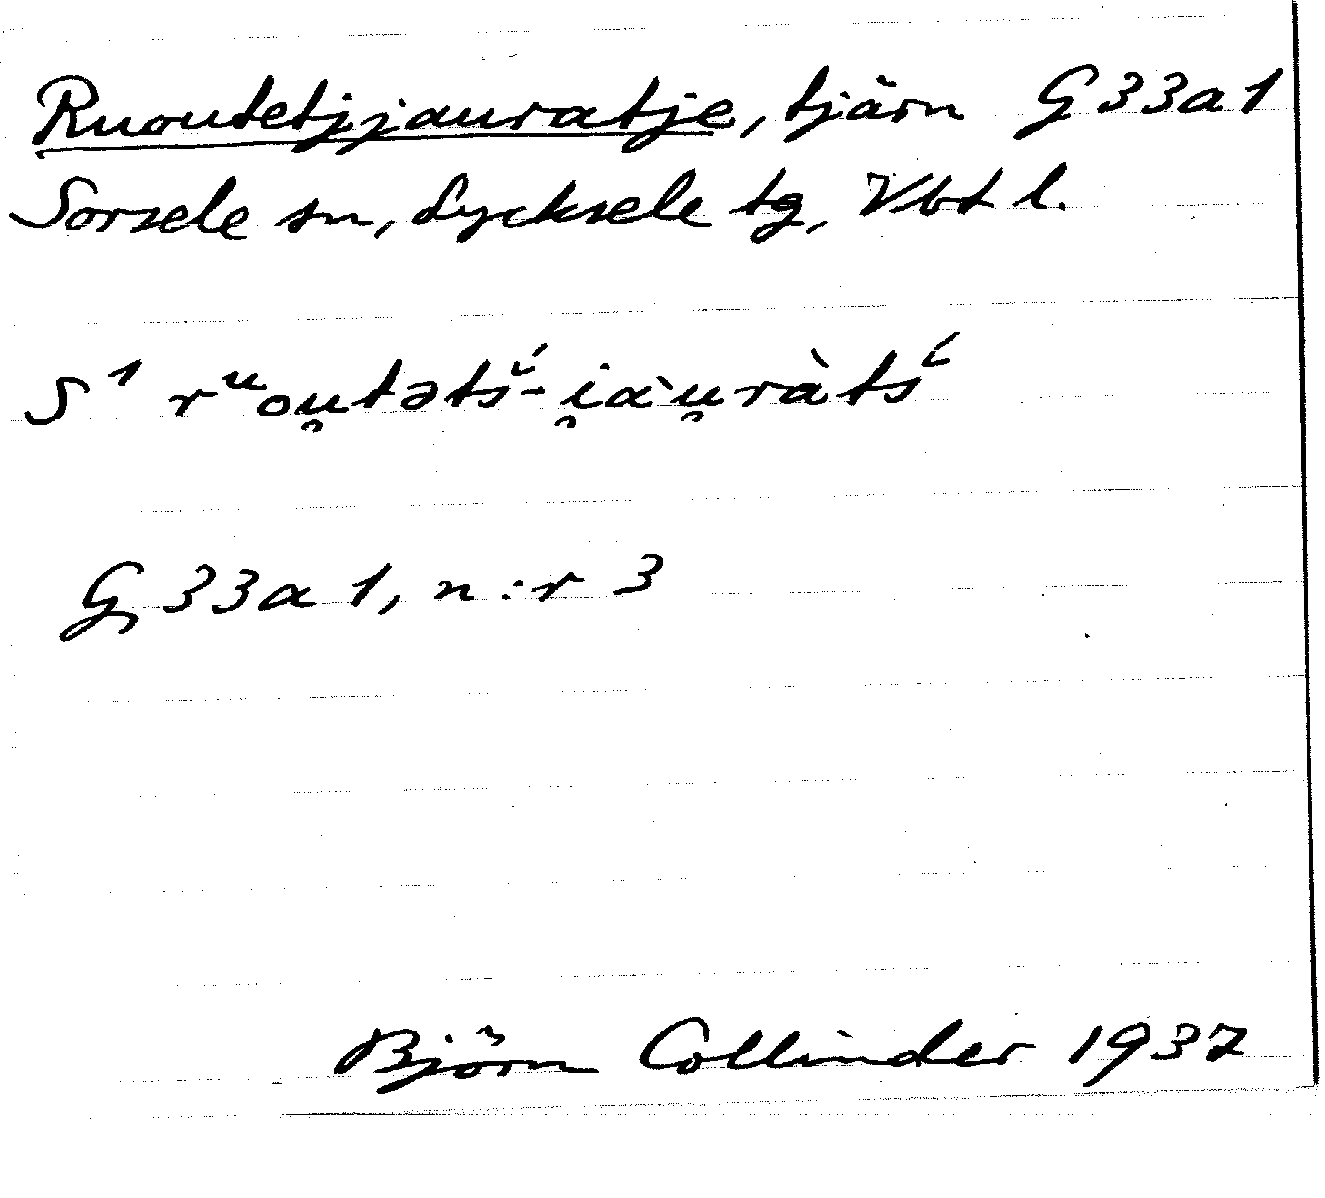 Ruoutetjjauratje, tjärn G 33a1
Sorsele sn, Lycksele tg, Vbt l.
S¹ rᵘou̯tətš́-i̯àu̯ràtś
G 33a 1, n:r 3
Björn Collinder 1937